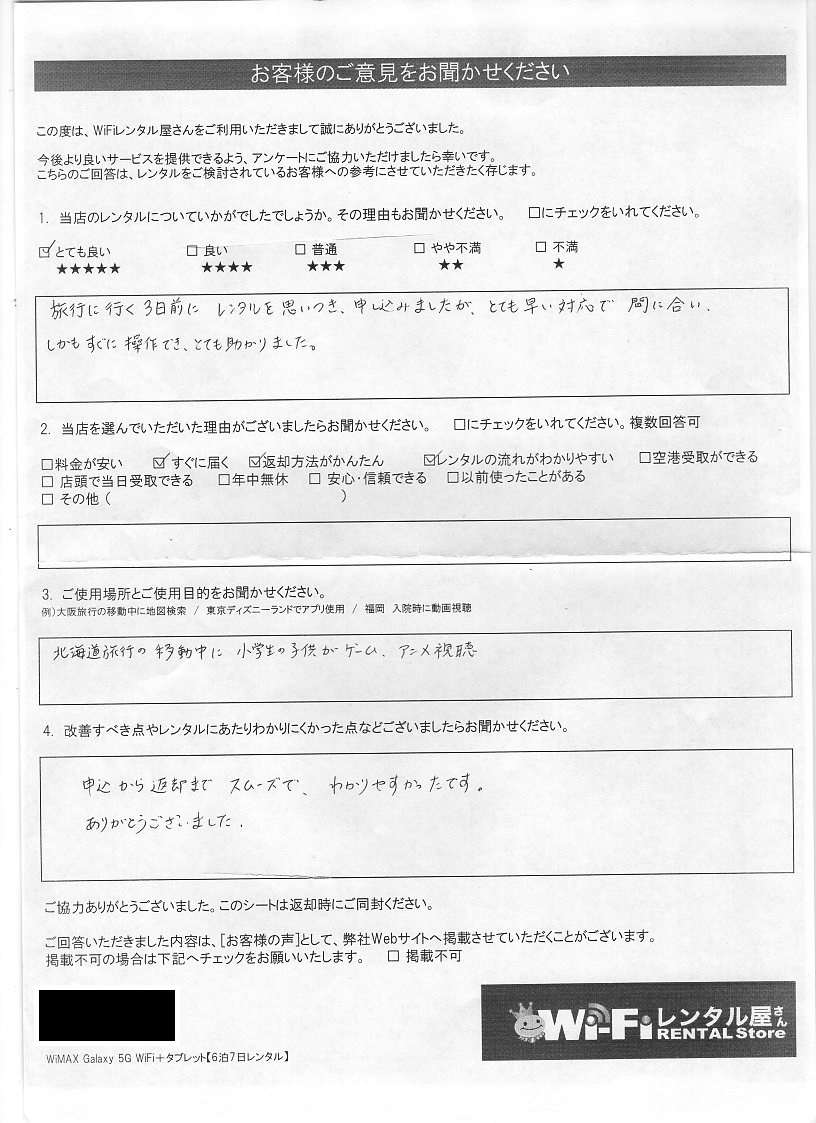 お客様のご意見をお聞かせください
この度は、WiFiレンタル屋さんをご利用いただきまして誠にありがとうございました。
今後より良いサービスを提供できるよう、アンケートにご協力いただけましたら幸いです。
こちらのご回答は、レンタルをご検討されているお客様への参考にさせていただきたく存じます。
1. 当店のレンタルについていかがでしたでしょうか。その理由もお聞かせください。 □にチェックをいれてください。
☑とても良い □良い □普通 □やや不満 □不満
★★★★★ ★★★★ ★★★ ★★ ★
旅行に行く3日前に レンタルを思いつき、申し込みましたが、とても早い対応で 間に合い、
しかもすぐに操作でき、とても助かりました。
2. 当店を選んでいただいた理由がございましたらお聞かせください。 □にチェックをいれてください。複数回答可
□料金が安い ☑すぐに届く ☑返却方法がかんたん ☑レンタルの流れがわかりやすい □空港受取ができる
□店頭で当日受取できる □年中無休 □安心・信頼できる □以前使ったことがある
□その他( )
3. ご使用場所とご使用目的をお聞かせください。
例)大阪旅行の移動中に地図検索 / 東京ディズニーランドでアプリ使用 / 福岡 入院時に動画視聴
北海道旅行の移動中に 小学生の子供がゲーム、アニメ視聴
4. 改善すべき点やレンタルにあたりわかりにくかった点などございましたらお聞かせください。
申込から返却まで スムーズで、 わかりやすかったです。
ありがとうございました.
ご協力ありがとうございました。このシートは返却時にご同封ください。
ご回答いただきました内容は、[お客様の声]として、弊社Webサイトへ掲載させていただくことがございます。
掲載不可の場合は下記へチェックをお願いいたします。 □ 掲載不可
Wi-Fiレンタル屋さん
RENTAL Store
WiMAX Galaxy 5G WiFi+タブレット【6泊7日レンタル】